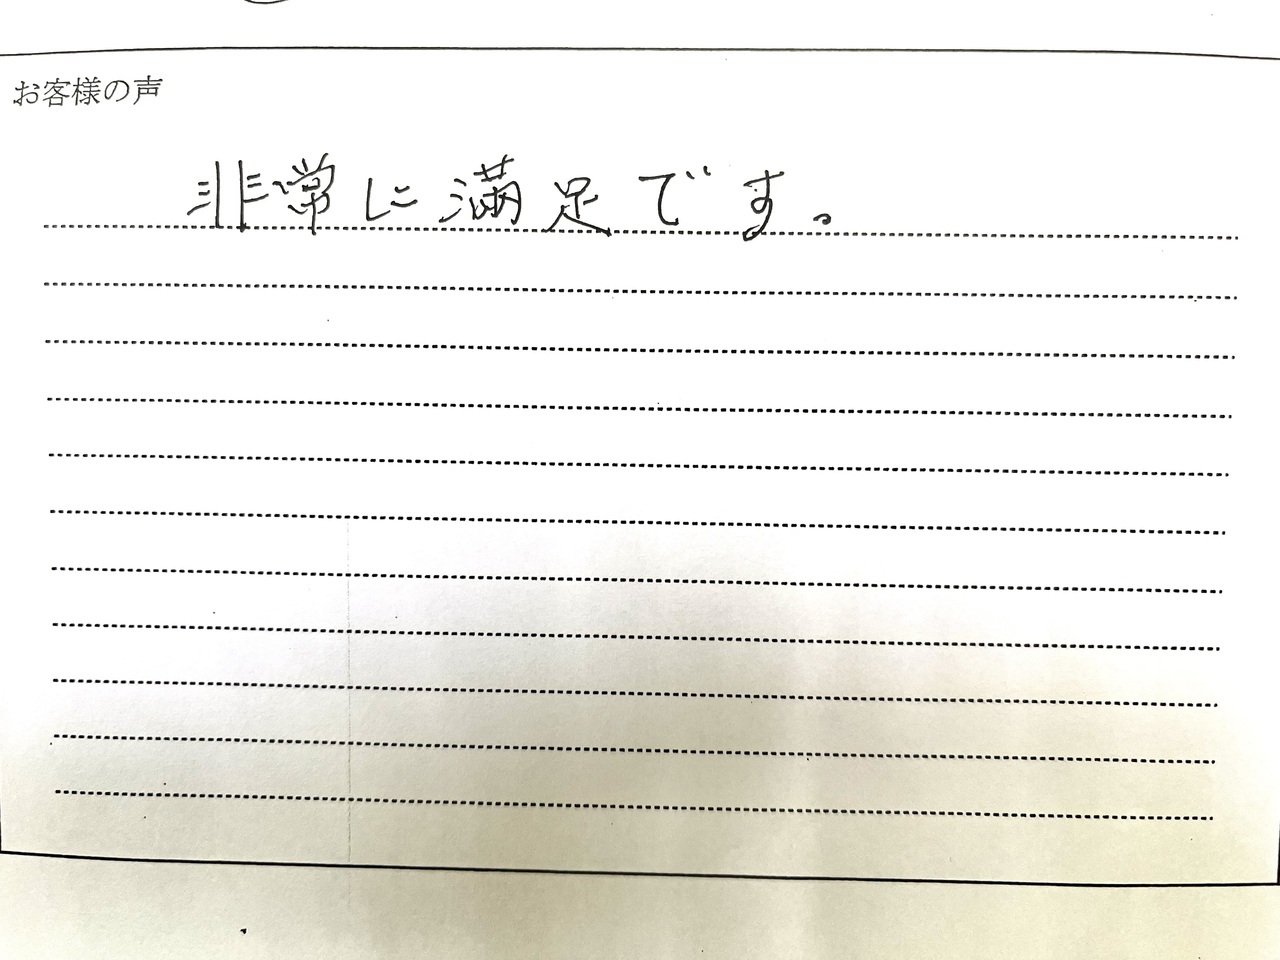 お客様の声
非常に満足です。